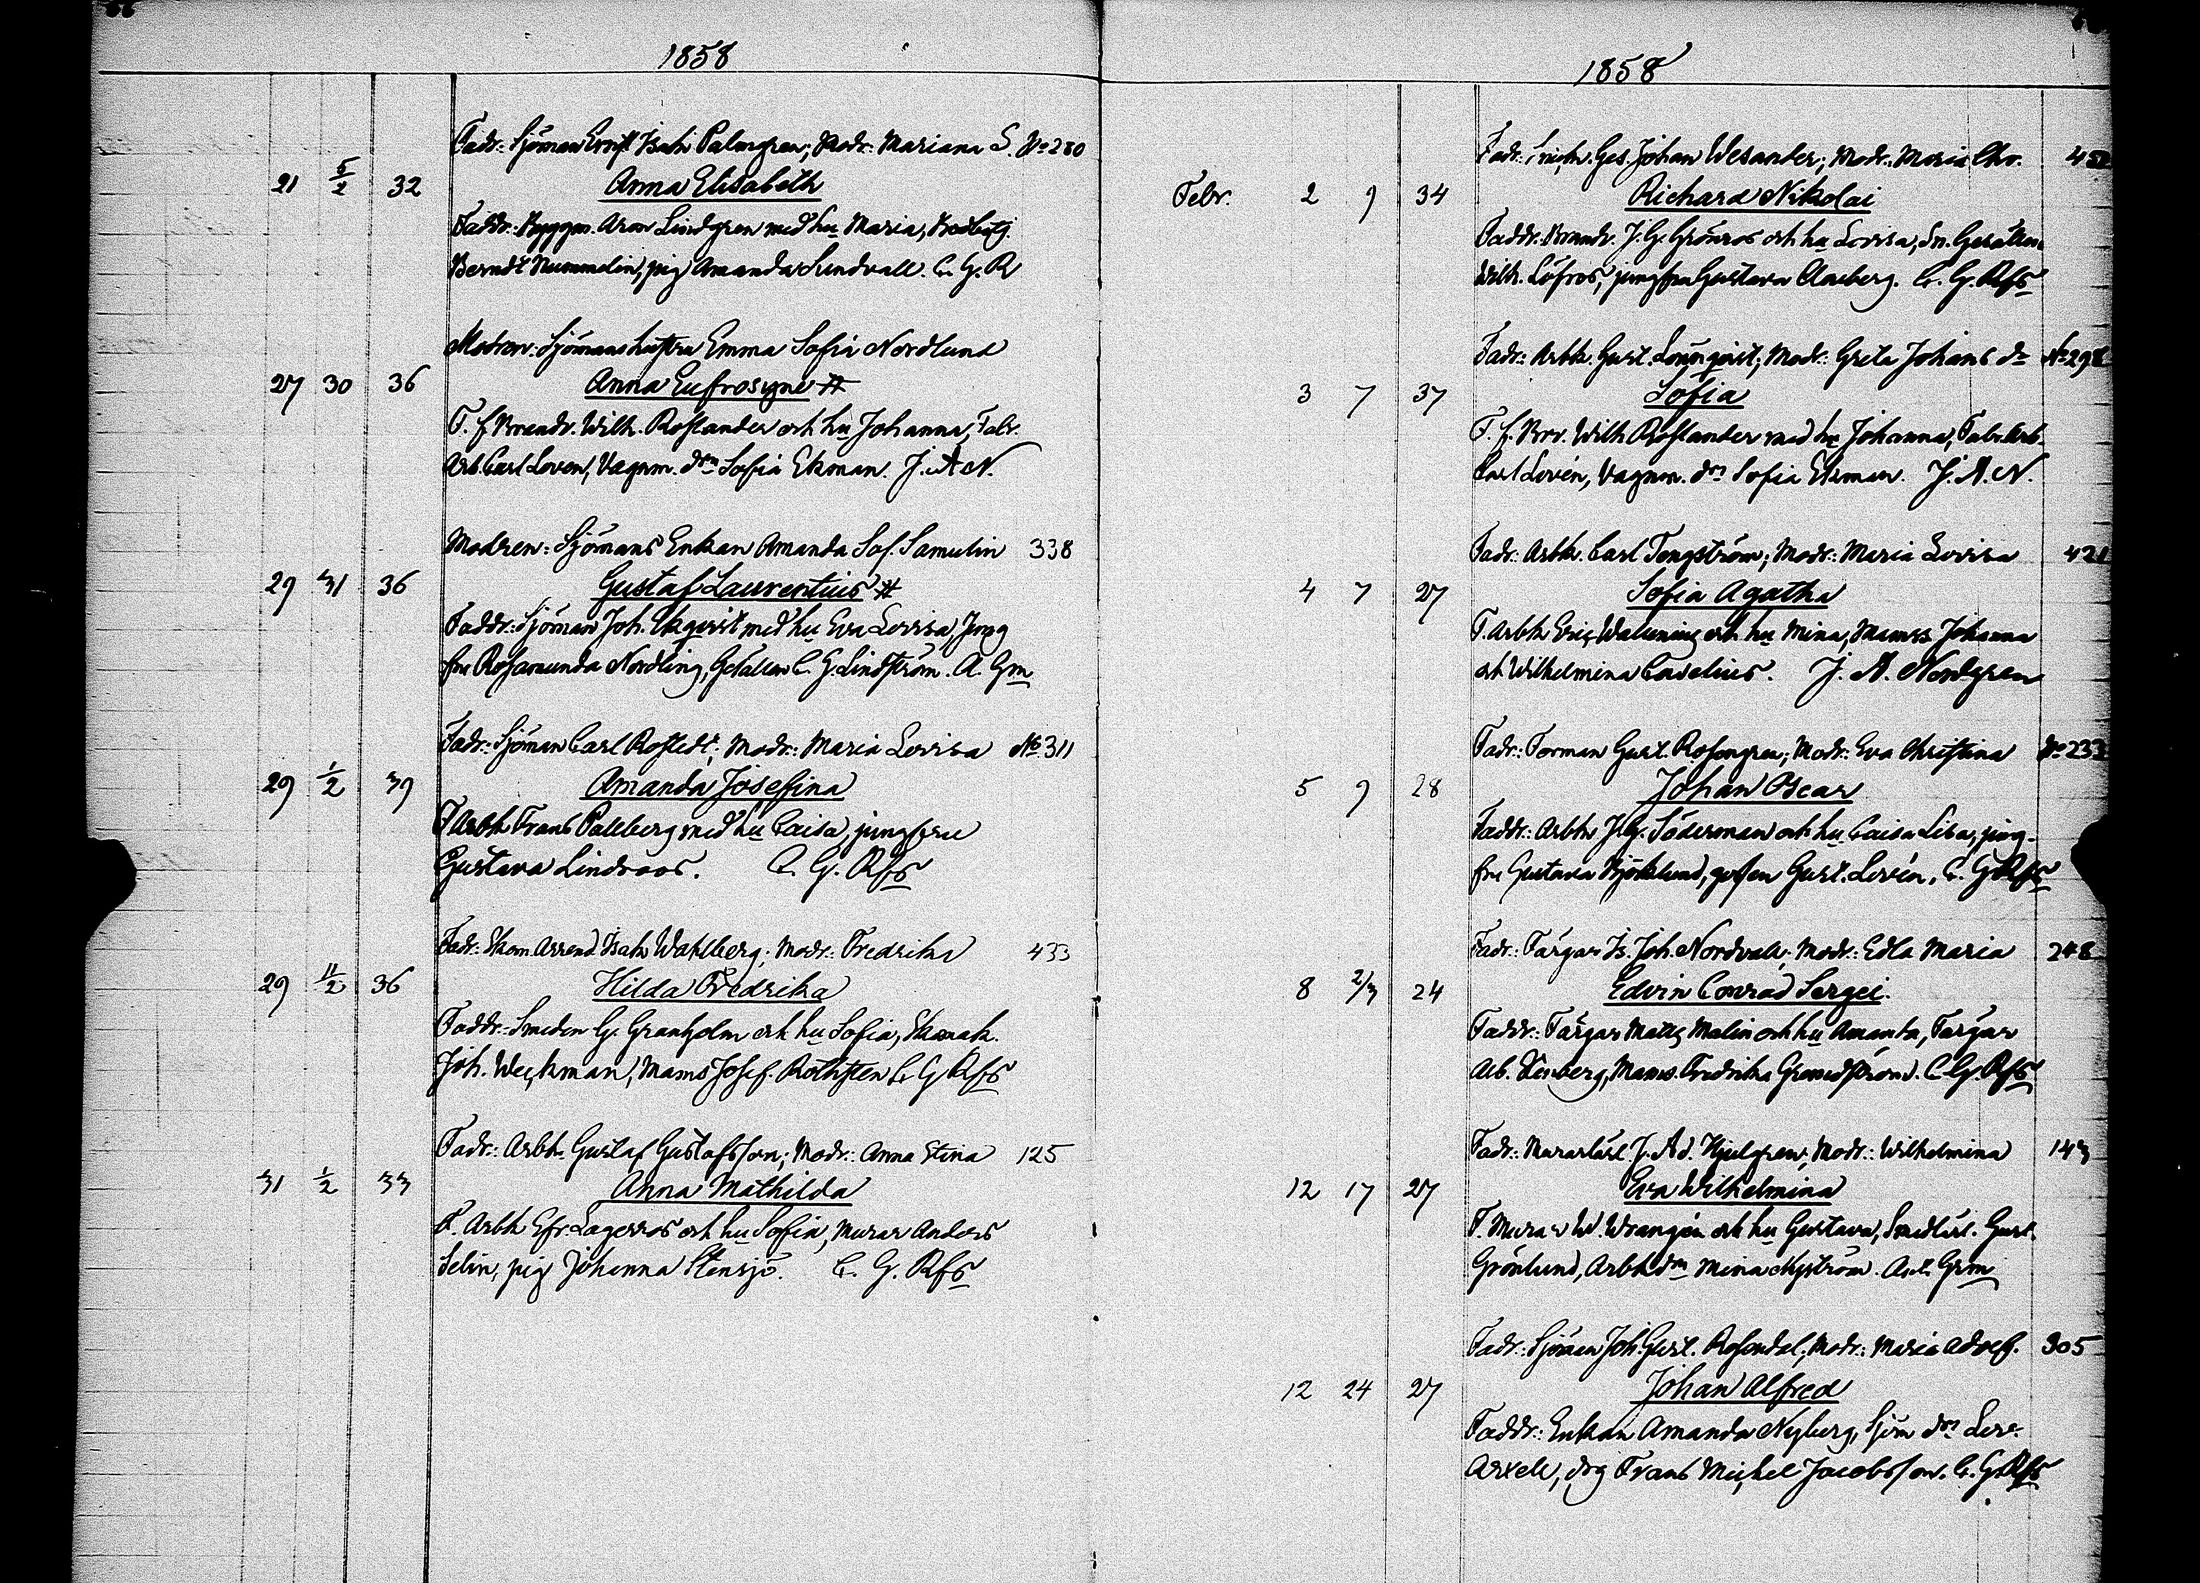 1858
Fadr: Sjöman Ernst Isak Palmgren; Modr: Mariana S. No 280
21 5/2 32 Anna Elisabeth
Faddr: Byggm. Aron Lindgren med hu Maria,
Berndt Nummelin, pig Amanda Sundvall. C. G. R
Modren: Sjömans hustru Emma Sofia Nordlund
27 30 36 Anna Eufrosyne #
F. f Brandv. Wilh. Roslander och hu Johanna, Fabr.
Arb. Carl Loven, Vagnm. drn Sofia Ekman. J. A N.
Modren: Sjömans Enkan Amanda Sof. Samulin 338
29 31 36 Gustaf Laurentius #
Faddr: Sjöman Joh. Ekqvist med hu Eva Lovisa, Jung
fru Rosamunda Nordling, Gesällen C. G. Lindström. A. Grm
Fadr: Sjöman Carl Rostedt; Modr: Maria Lovisa No 311
29 1/2 39 Amanda Josefina
F Arbk Frans Pallberg med hu Caisa, jungfru
Gustava Lindroos. C. G. Rfs
Fadr: Skom. Arrend. Isak Wahlberg; Modr: Fredrika 433
29 11/2 36 Hilda Fredrika
Faddr: Smeden G. Granholm och hu Sofia,
Joh. Weckman, Mams Josef. Rothsten C. G Rfs
Fadr: Arbk. Gustaf Gustafsson; Modr: Anna Stina 125
31 1/2 33 Anna Mathilda
F. Arbk Efr. Lagerros och hu Sofia, Murar Anders
Selin, pig Johanna Stensjö. C. G. Rfs
1858
Fadr: Ges. Johan Wesander; Modr: Maria Chr.
Febr. 2 9 34 Richard Nikolai
Faddr: Brandv. J. G. Grönros och hu Lovisa, Sn. Gesällen
Wilh. Löfros, jungfru Gustava Claseberg. C. G. Rfs
Fadr: Arbk. Gust. Lönnqvist; Modr: Greta Johans dr No 298
3 7 37 Sofia
F. f. Brv. Wilh Roslander med hu Johanna, Fabr. Arb.
Carl Lovén, Vagnm. drn Sofia Ekman. J. A. N.
Fadr: Arbk. Carl Tengström; Modr: Maria Lovisa 421
4 7 27 Sofia Agatha
F. Arbk Eric Walening och hu Mina, Mamss. Johanna
och Wilhelmina Cordelius. J. A. Nordgren
Fadr: Forman Gust. Rosengren; Modr: Eva Christina No 233
5 9 28 Johan Oscar
Faddr: Arbk J. G. Söderman och hu Caisa Lisa, jung-
fru Gustava Björklund, gossen Gust. Lovén. C. G Rfs
Fadr: Färgar Is. Joh. Nordvall; Modr: Edla Maria 248
8 2/3 24 Edvin Conrad Sergei.
Faddr: Färgar Matts Malin och hu Amanda, Färgar
Arb. Mams. Fredrika Grundström. C G. Rfs
Fadr: J. Ad. Hjelgren; Modr: Wilhelmina 143
12 17 27 Eva Wilhelmina
F. Murar W. Wrangén och hu Gustava, Gust.
Grönlund, Arbk drn Mina Nyström. Grm
Fadr: Sjöman Joh. Gust. Rosendal; Modr: Maria Adolf. 305
12 24 27 Johan Alfred
Faddr: Enkan Amanda Nyberg, Sjöm drn Lov.
Axell, drg Frans Michel Jacobsson. C. G. Rfs